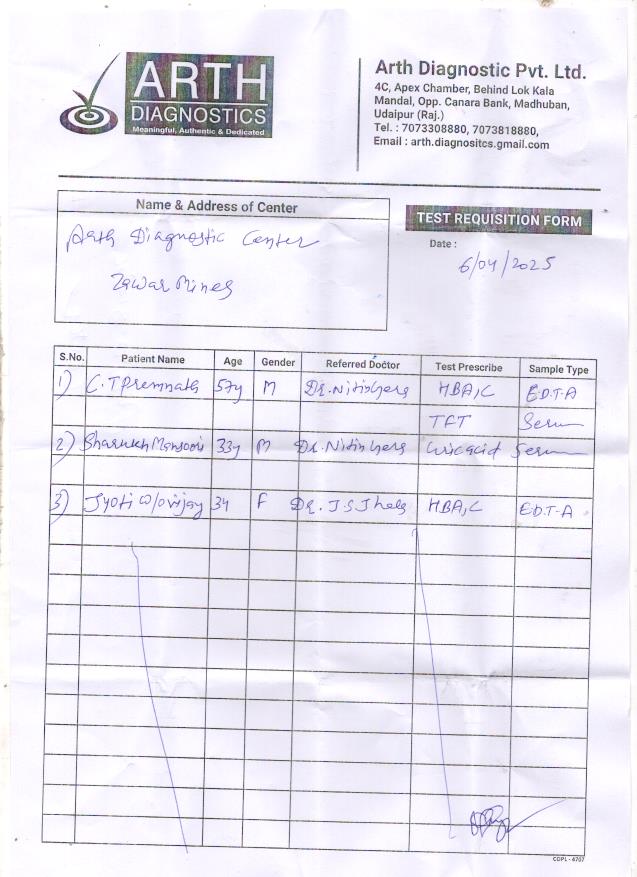 ARTH
DIAGNOSTICS
Meaningful, Authentic & Dedicated
Arth Diagnostic Pvt. Ltd.
4C, Apex Chamber, Behind Lok Kala
Mandal, Opp. Canara Bank, Madhuban,
Udaipur (Raj.)
Tel. : 7073308880, 7073818880,
Email : arth.diagnositcs.gmail.com
Name & Address of Center
Arth Diagnostic Center
Zawar Mines
TEST REQUISITION FORM
Date :
6/04/2025
S.No. Patient Name Age Gender Referred Doctor Test Prescribe Sample Type
1) C.T Premnath 57y M Dr. Nitin HBA1C E.D.T-A
TFT Serum
2) Sharukh Mansoori 33y M Dr. Nitin Uric acid Serum
3) Jyoti w/o vijay 34 F Dr. J S HBA1C E.D.T-A
CDPL - 4707